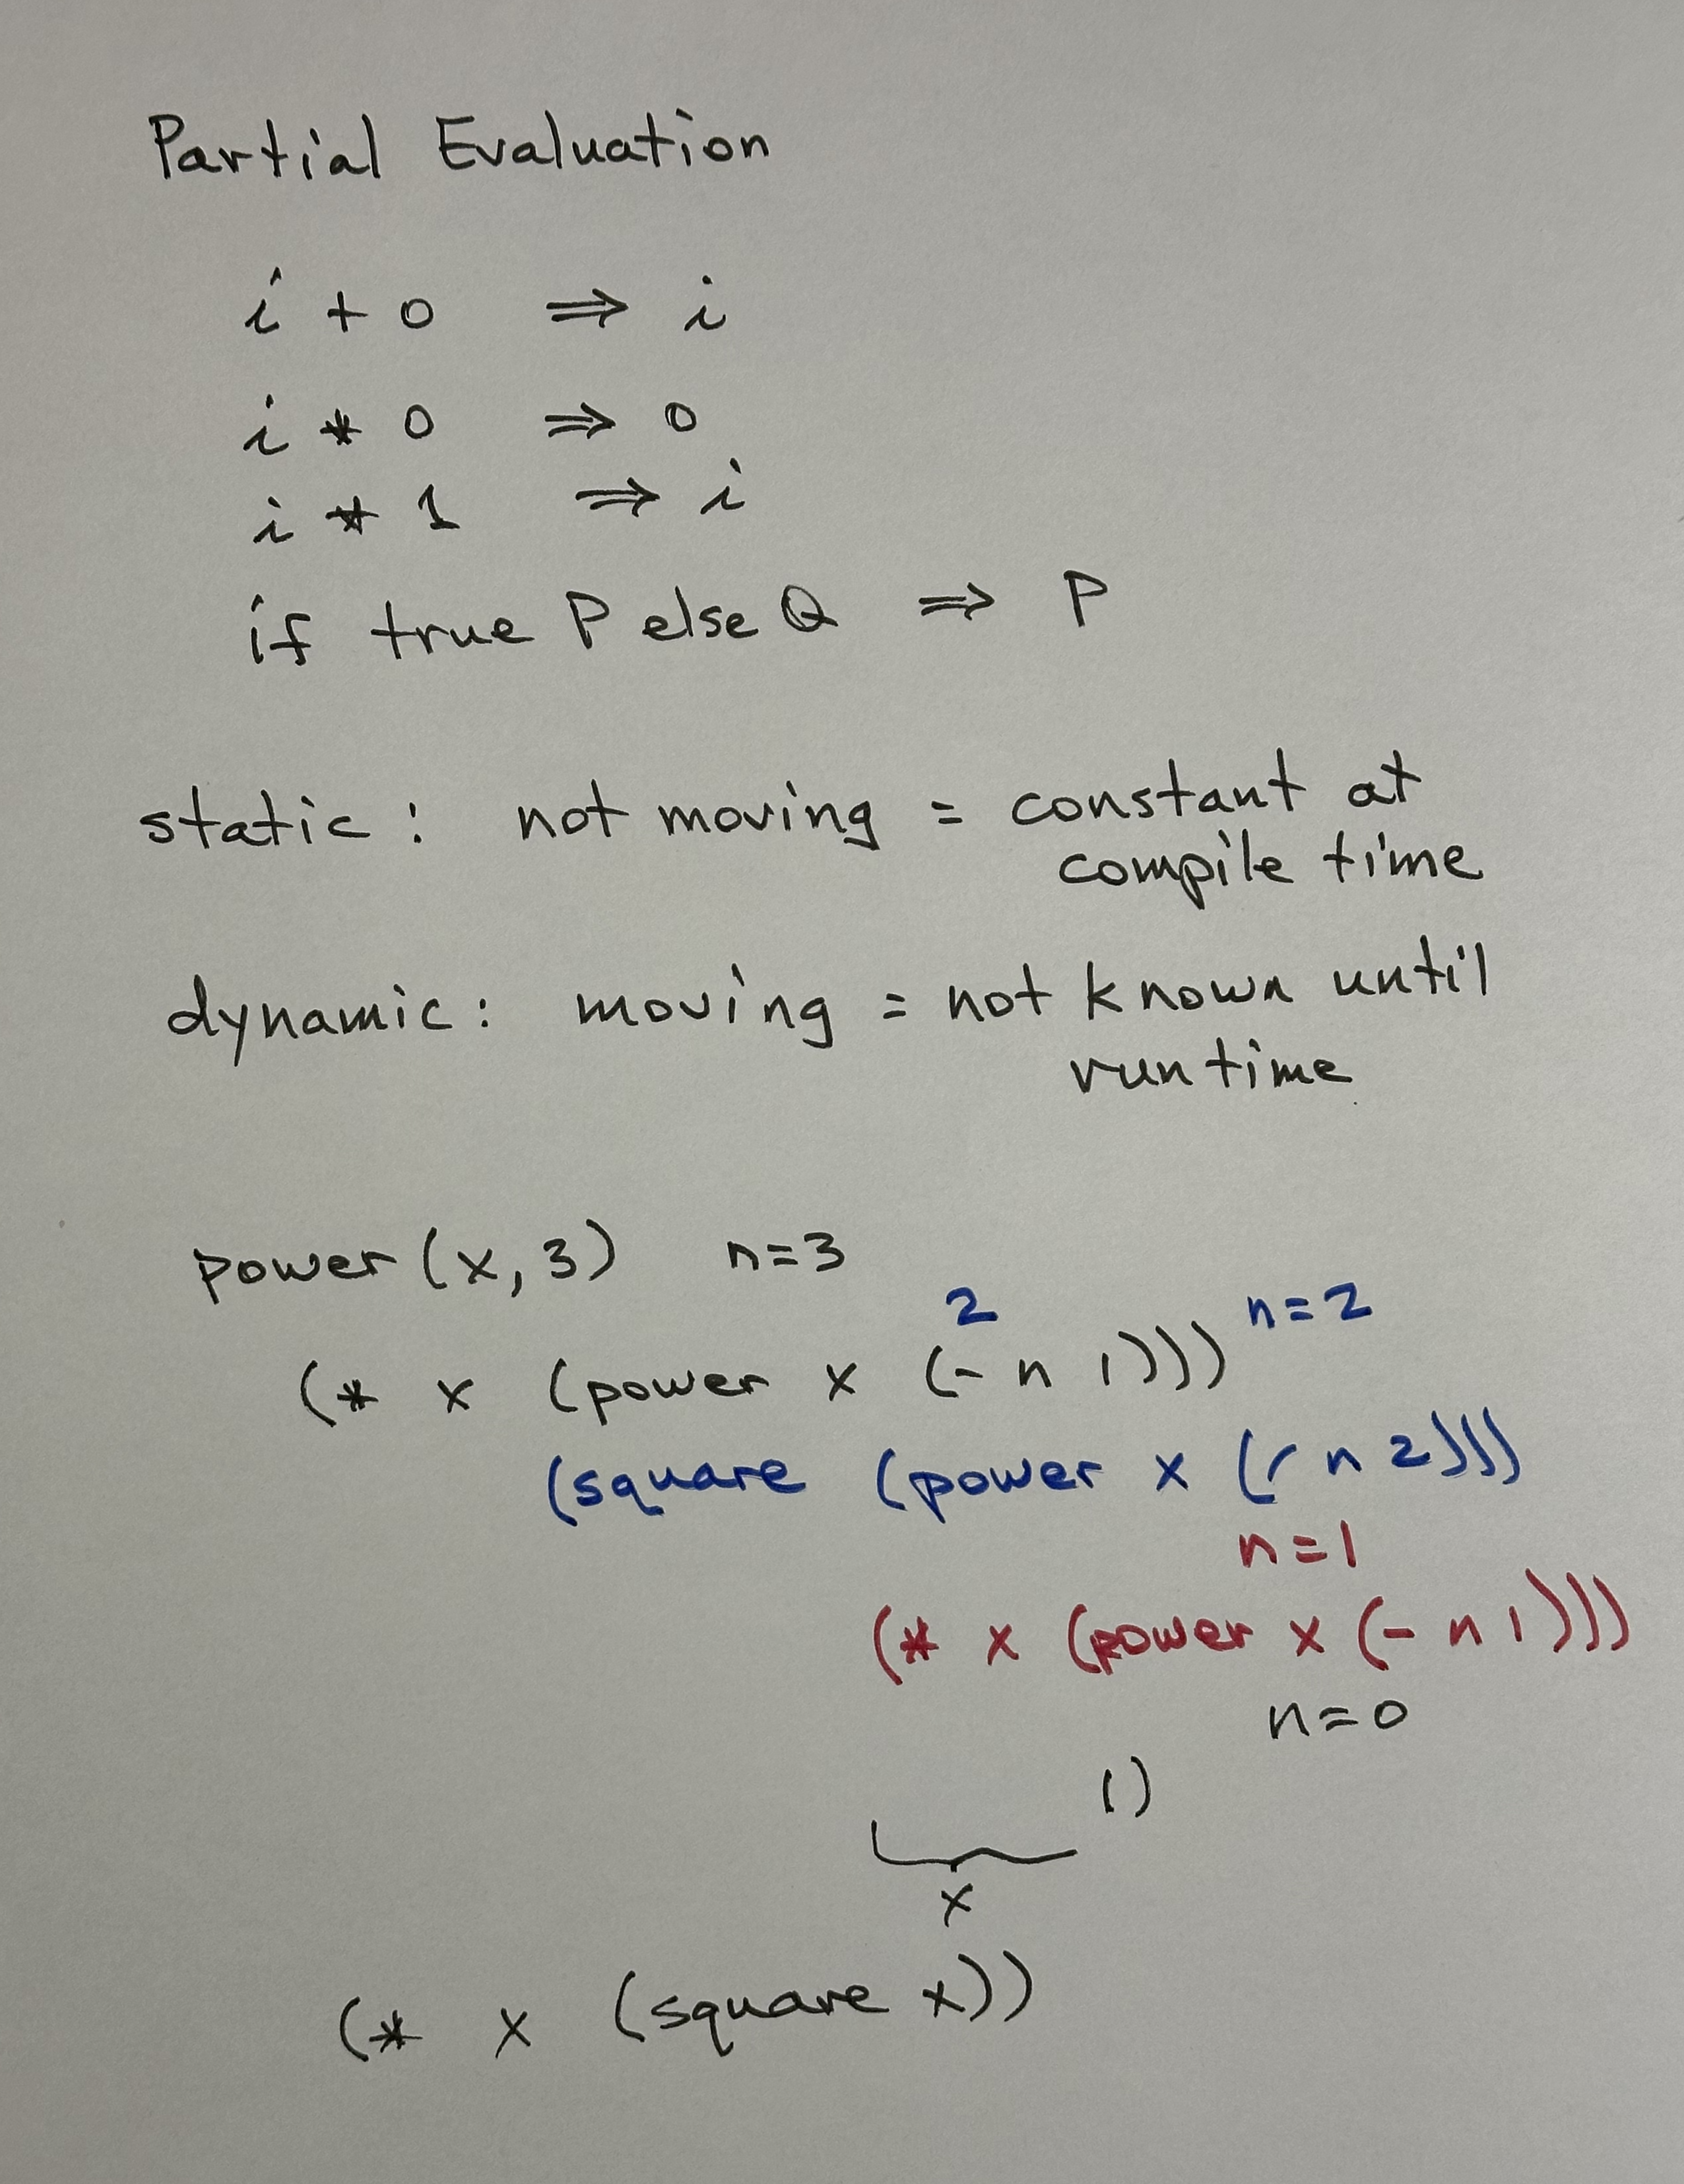 Partial Evaluation
i + 0 ⇒ i
i * 0 ⇒ 0
i * 1 ⇒ i
if true P else Q ⇒ P
static: not moving = constant at
compile time
dynamic: moving = not known until
runtime
power (x, 3) n=3
2 n=2
(* x (power x (- n 1)))
(square (power x (/ n 2)))
n=1
(* x (power x (- n 1)))
n=0
1)
x
(* x (square x))